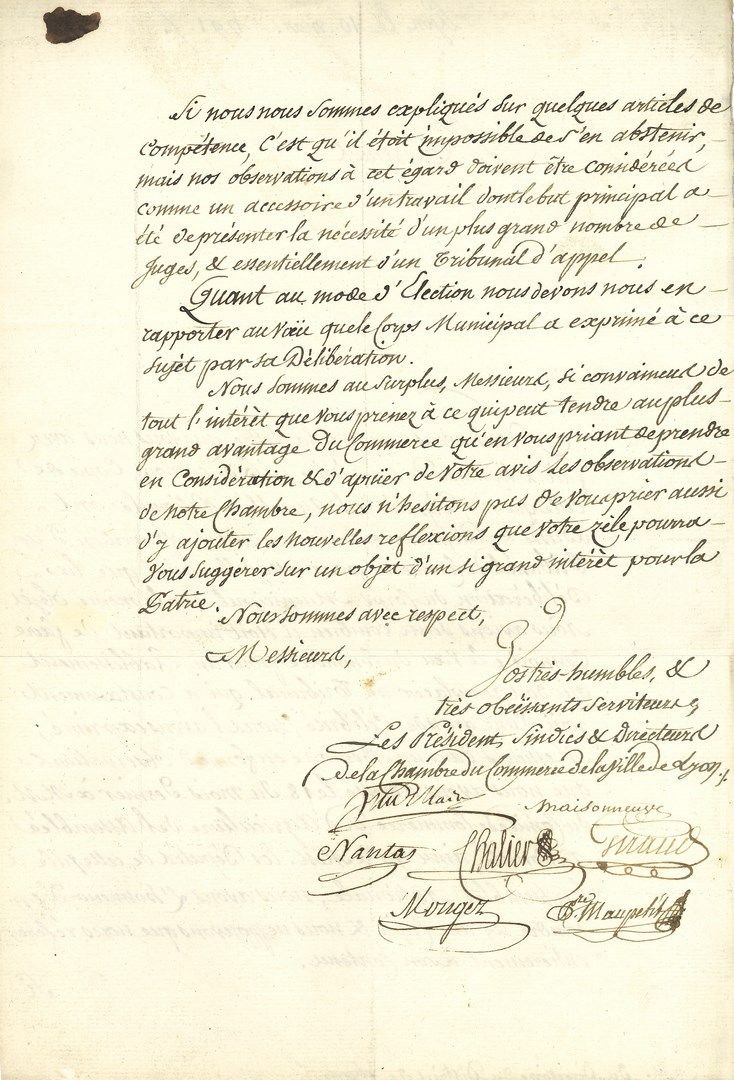 Si nous nous sommes expliqués sur quelques articles de
compétence, c'est qu'il étoit impossible de s'en abstenir,
mais nos observations à cet égard doivent être considérées
comme un accessoire d'un travail dont le but principal a
été de présenter la nécessité d'un plus grand nombre de
Juges, & essentiellement d'un Tribunal d'appel.
Quant au mode d'Élection nous devons nous en
rapporter au Vœu que le Corps Municipal a exprimé à ce
sujet par sa Délibération.
Nous sommes au surplus, Messieurs, si convaincus de
tout l'intérêt que vous prenez à ce qui peut tendre au plus
grand avantage du Commerce qu'en vous priant de prendre
en Considération & d'apuïer de Votre avis les observations
de notre Chambre, nous n'hesitons pas de vous prier aussi
d'y ajouter les nouvelles reflexcions que Votre zêle pourra
Vous suggérer sur un objet d'un si grand intérêt pour la
Patrie.
Nous sommes avec respect,
Messieurs,
Vos très-humbles, &
très obéissants serviteurs,
Les Président, Sindics & Directeurs
de la Chambre du Commerce de la Ville de Lyon
maisonneuve
Nantas Chalier
Mouger Maupetit